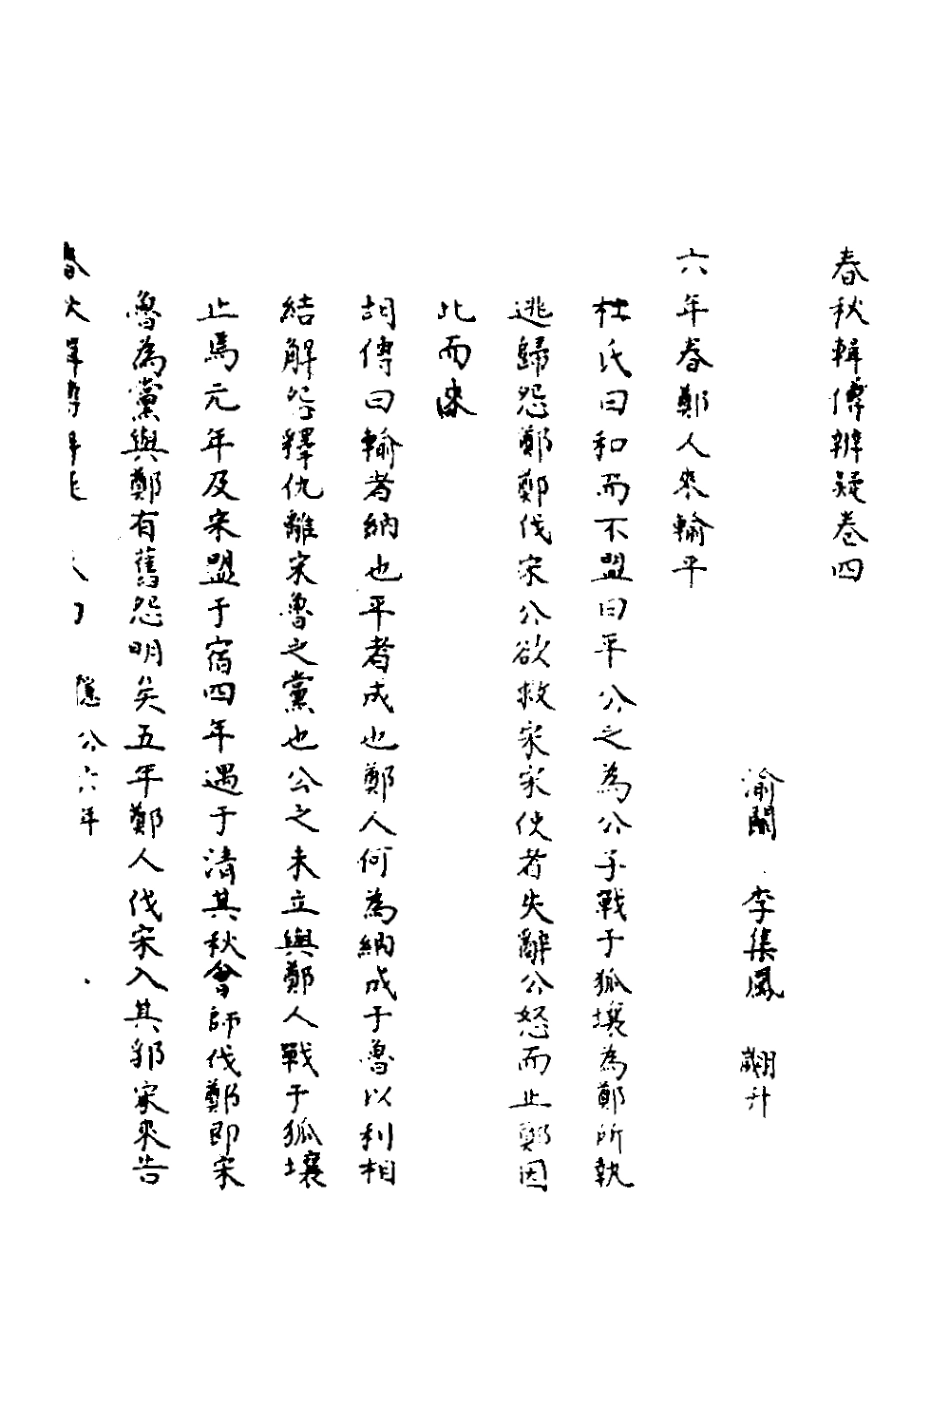 春秋輯傳辨疑卷四
渝關　李集鳳　翽升
六年春鄭人來輸平
杜氏曰和而不盟曰平公之為公子戰于狐壤為鄭所執
逃歸怨鄭鄭伐宋公欲救宋宋使者失辭公怒而止鄭因
此而來
胡傳曰輸者納也平者成也鄭人何為納成于魯以利相
結解怨釋仇離宋魯之黨也公之未立與鄭人戰于狐壤
止焉元年及宋盟于宿四年遇于清其秋會師伐鄭即宋
魯為黨與鄭有舊怨明矣五年鄭人伐宋入其郛宋來告
春秋輯傳辨疑　隱公六年